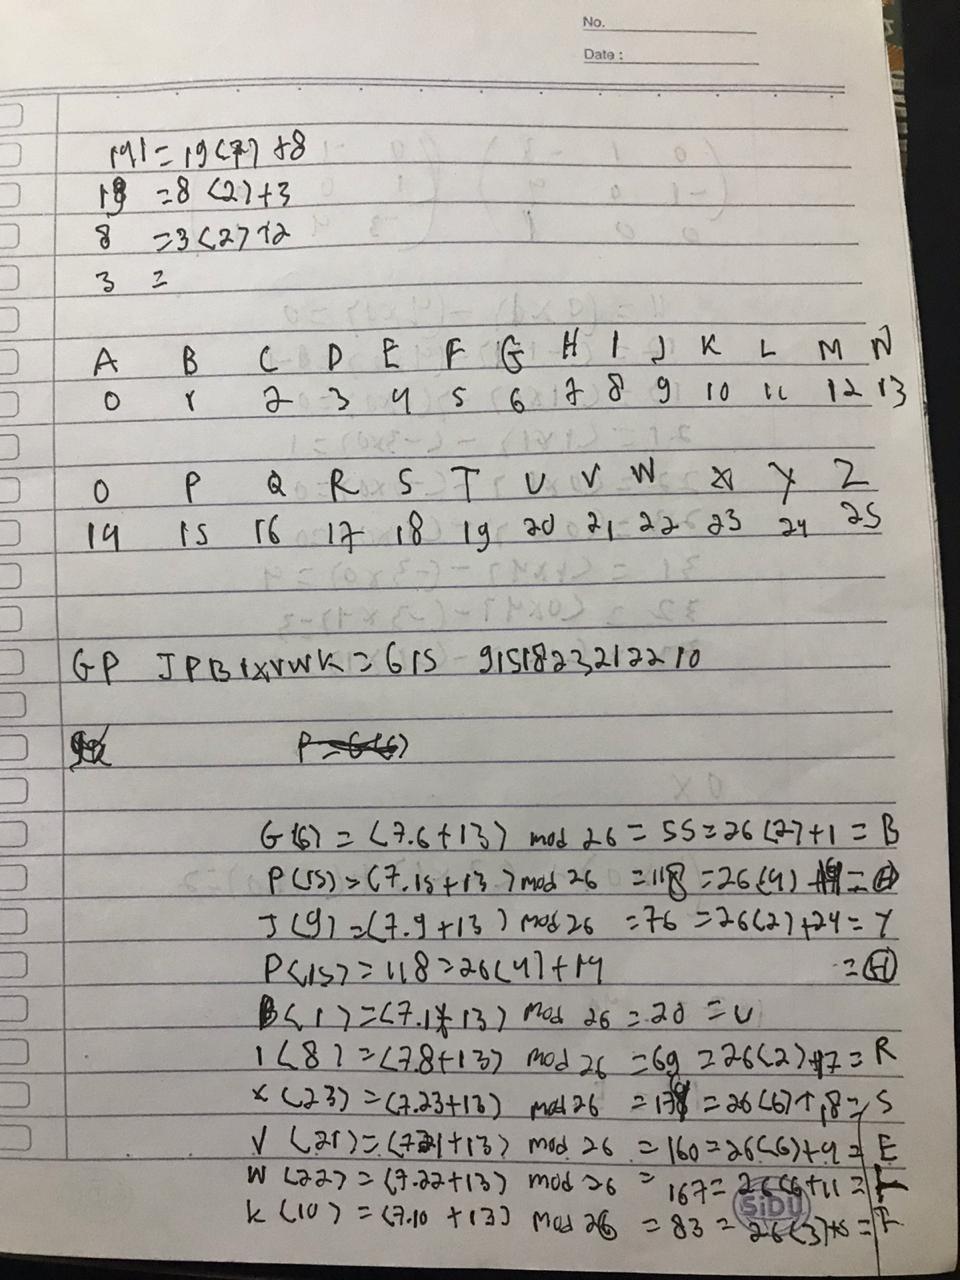 No.
Date :
141 = 19(7) +8
19 = 8 (2)+3
8 = 3(2)+2
3 =
A B C D E F G H I J K L M N
0 1 2 3 4 5 6 7 8 9 10 11 12 13
O P Q R S T U V W X Y Z
14 15 16 17 18 19 20 21 22 23 24 25
GP JPBIXVWK = 615 9151823212210
G(6) = (7.6+13) mod 26 = 55 = 26(2)+1 = B
P(15) = (7.15+13) mod 26 = 118 = 26(4) +14 =
J(9) = (7.9+13) mod 26 = 76 = 26(2)+24 = Y
P(15) = 118 = 26(4)+14 =
B(1) = (7.1+13) mod 26 = 20 = U
I(8) = (7.8+13) mod 26 = 69 = 26(2)+17 = R
X(23) = (7.23+13) mod 26 = = 26(6)+18 = S
V(21) = (7.21+13) mod 26 = 160 = 26(6)+4 = E
W(22) = (7.22+13) mod 26 = 167 = 26(6+11 =
K(10) = (7.10 +13) mod 26 = 83 = 26(3)+5 = F
SiDU